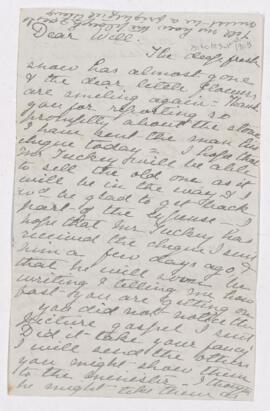 Dear Will.
The deep fresh
snow has almost gone
& the dear little flowers
are smiling again - Thank
you for replying so
promptly about the stove
I have sent the man his
cheque today - I hope that
Mr Tuckey will be able
to sell the old one as it
will be in the way & I
wd be glad to get back
part of the expense - I
hope that Mr Tuckey has
received the cheque I sent
him a few days ago &
that he will soon be
writing & telling me how
fast you are getting on
you did not notice the
picture gospel I sent
Did it take your fancy
I will send the others
you might show them
to the minister - I thought
he might take them as